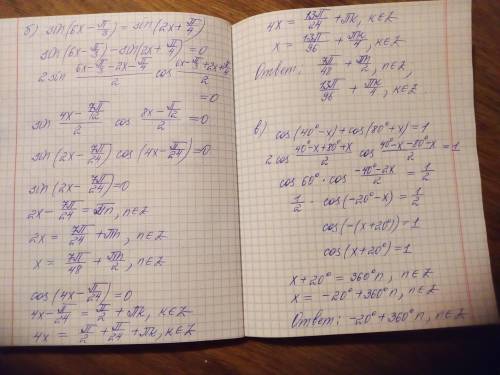 б) sin(6x - π/3) = sin(2x + π/4)
sin(6x - π/3) - sin(2x + π/4) = 0
2 sin (6x - π/3 - 2x - π/4)/2 cos (6x - π/3 + 2x + π/4)/2 = 0
sin (4x - 7π/12)/2 cos (8x - π/12)/2 = 0
sin(2x - 7π/24) cos(4x - π/24) = 0
sin(2x - 7π/24) = 0
2x - 7π/24 = πn, n∈Z
2x = 7π/24 + πn, n∈Z
x = 7π/48 + πn/2, n∈Z
cos(4x - π/24) = 0
4x - π/24 = π/2 + πk, k∈Z
4x = π/2 + π/24 + πk, k∈Z
4x = 13π/24 + πk, k∈Z
x = 13π/96 + πk/4, k∈Z
Ответ: 7π/48 + πn/2, n∈Z,
13π/96 + πk/4, k∈Z
в) cos(40° - x) + cos(80° + x) = 1
2 cos (40° - x + 80° + x)/2 cos (40° - x - 80° - x)/2 = 1
cos 60° · cos (-40° - 2x)/2 = 1/2
1/2 · cos(-20° - x) = 1/2
cos(-(x + 20°)) = 1
cos(x + 20°) = 1
x + 20° = 360°n, n∈Z
x = -20° + 360°n, n∈Z
Ответ: -20° + 360°n, n∈Z